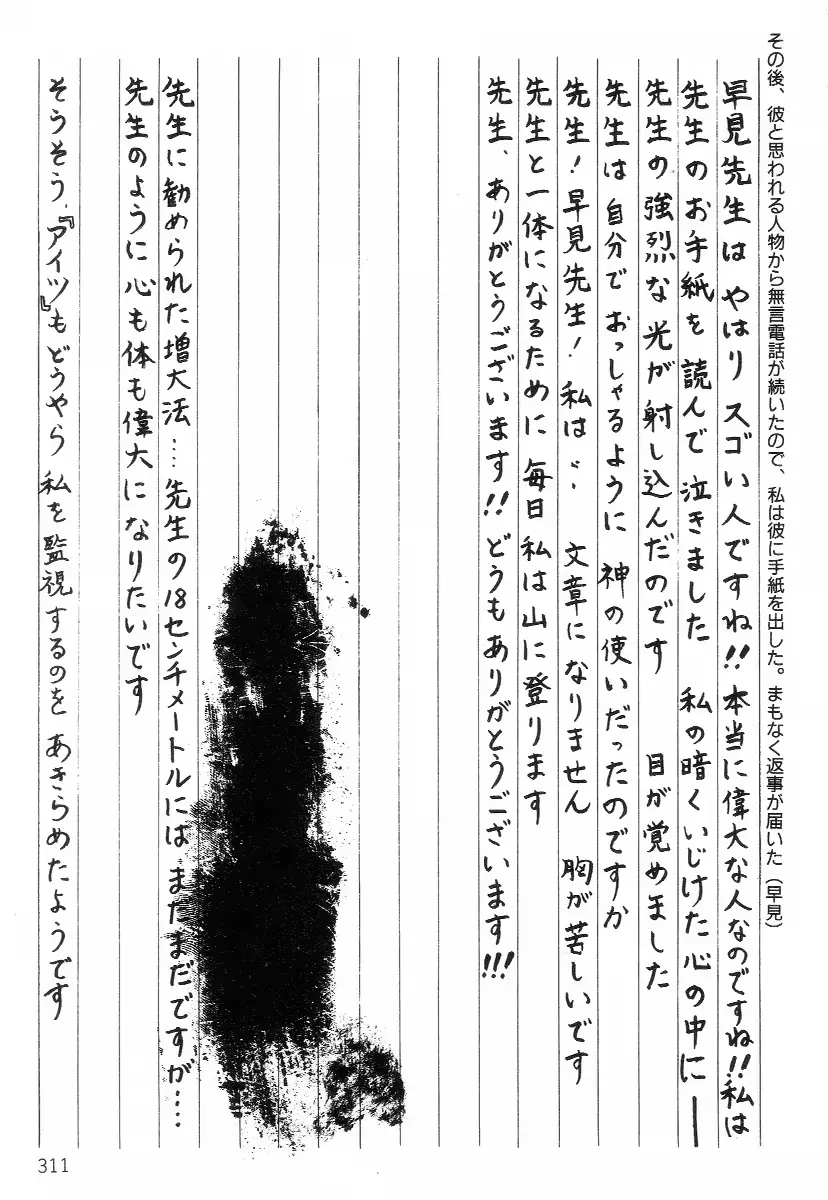 その後、彼と思われる人物から無言電話が続いたので、私は彼に手紙を出した。まもなく返事が届いた（早見）
早見先生は やはり スゴい人ですね!! 本当に偉大な人なのですね!! 私は
先生のお手紙を 読んで 泣きました 私の暗くいじけた心の中に―
先生の強烈な光が射し込んだのです 目が覚めました
先生は自分でおっしゃるように 神の使いだったのですか
先生! 早見先生! 私は… 文章になりません 胸が苦しいです
先生と一体になるために毎日私は山に登ります
先生、ありがとうございます!! どうもありがとうございます!!!
先生に勧められた増大法…先生の18センチメートルには まだまだですが…
先生のように心も体も偉大になりたいです
そうそう、『アイツ』もどうやら 私を監視するのを あきらめたようです
311